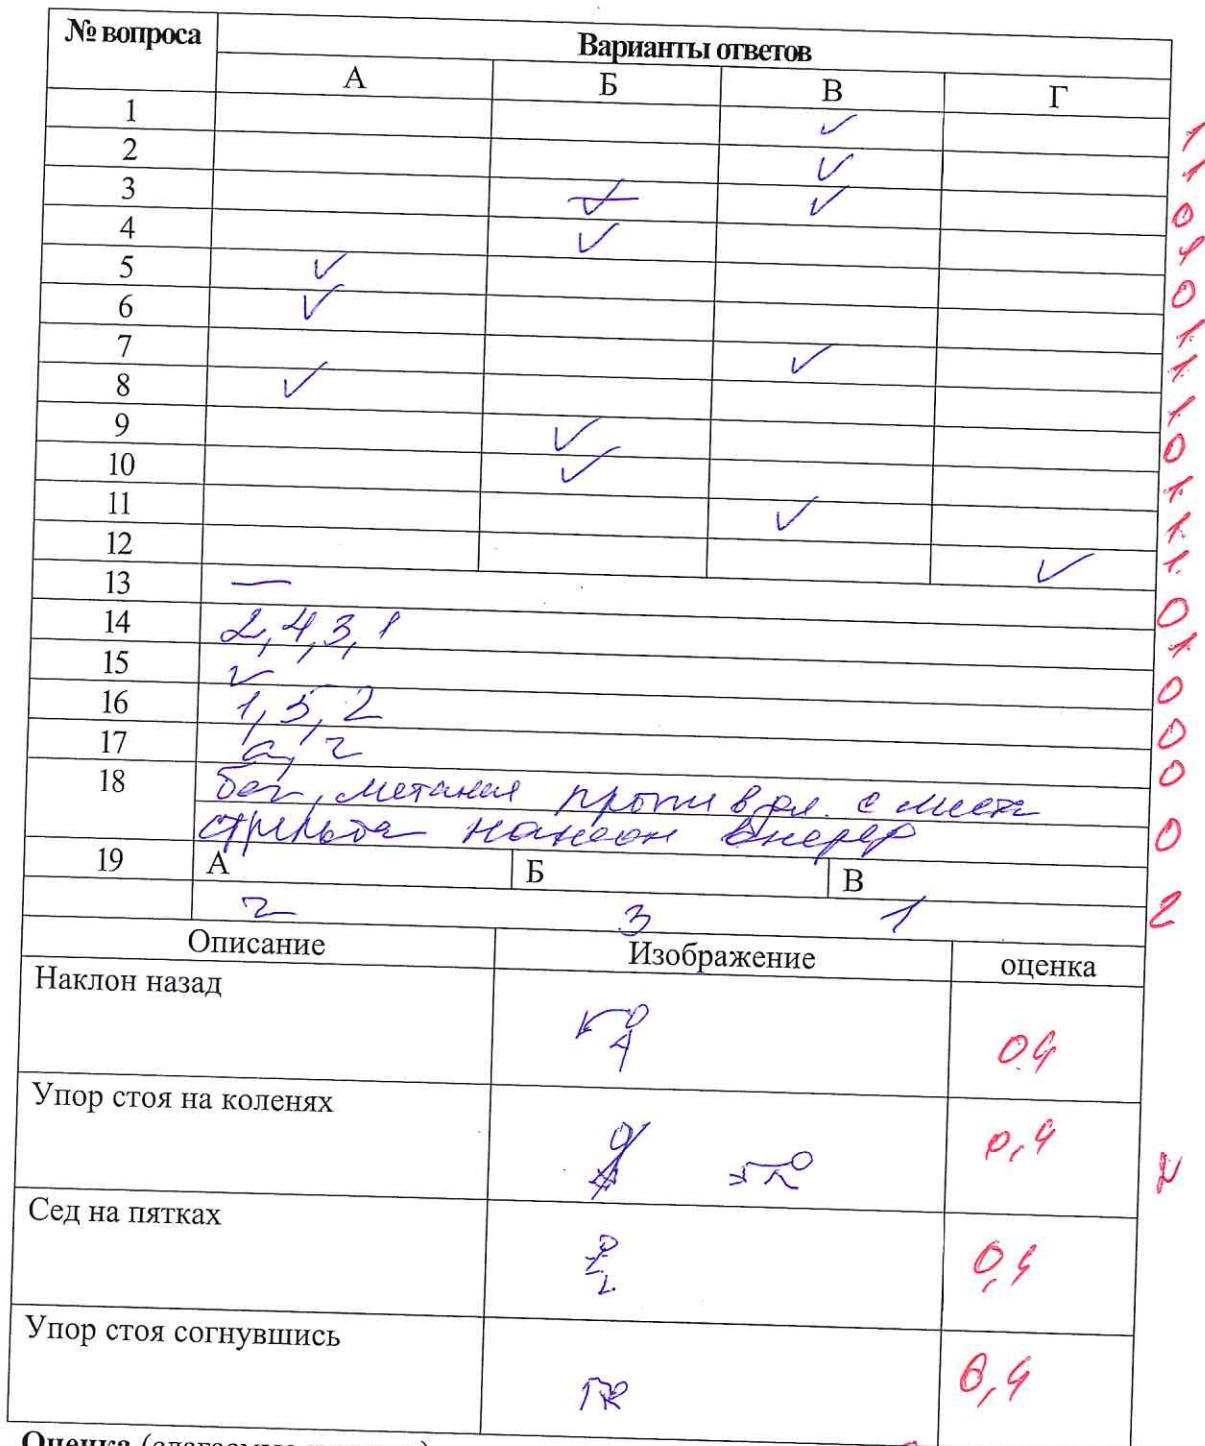 № вопроса Варианты ответов
А Б В Г
1 ✓ 1
2 ✓ 1
3 ✓ ✓ 0
4 ✓ 1
5 ✓ 0
6 ✓ 1
7 ✓ 1
8 ✓ 1
9 ✓ 0
10 ✓ 1
11 ✓ 1
12 ✓ 1
13 — 0
14 2,4,3,1 1
15 0
16 1,5,2 0
17 а, г 0
18 бег, метания в дл. с места
стрельба наклон вперед 0
19 А Б В
2 3 1 2
Описание Изображение оценка
Наклон назад 04
Упор стоя на коленях 0,4
Сед на пятках 0,4
Упор стоя согнувшись 0,4
Оценка